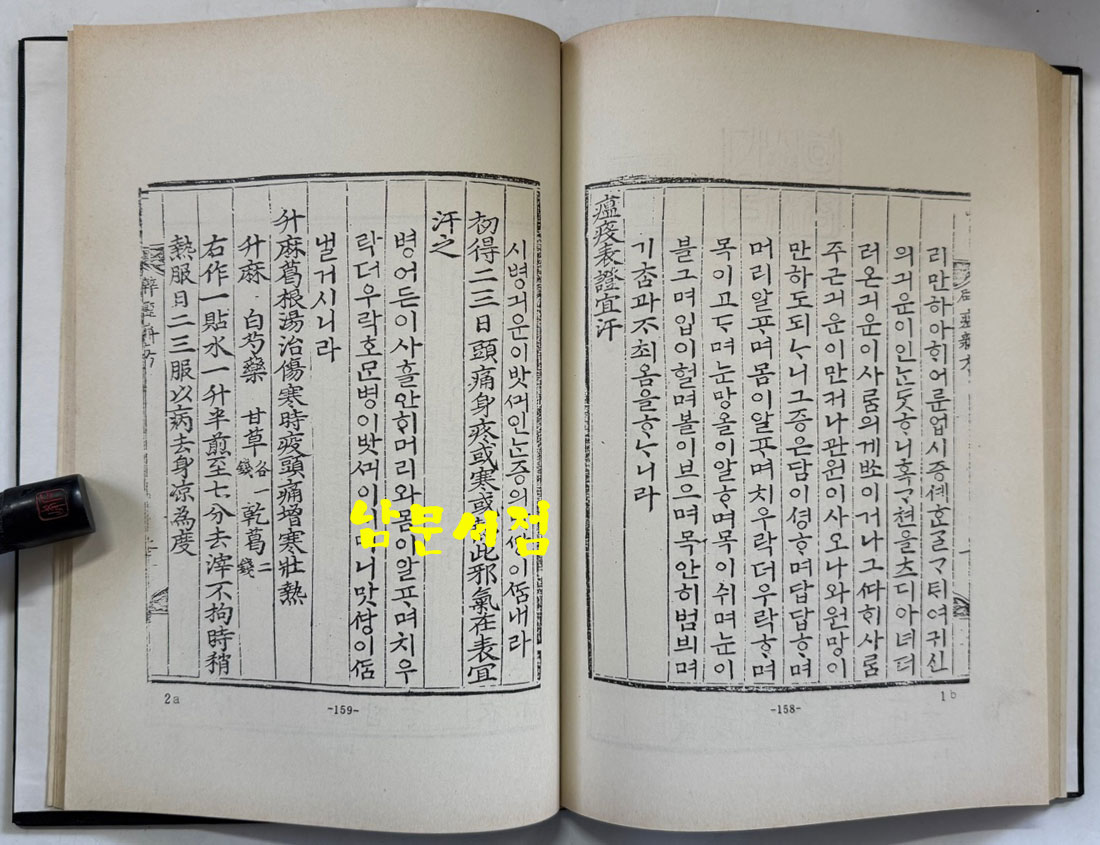 리만하아ᄒᆡ어룬업시증셰ᄒᆞᆫᄀᆞᆯᄀᆞ티여귀신
의긔운이인ᄂᆞᆫᄃᆞᆺᄒᆞ니혹ᄀᆞ쳔을츠디아녀더
러온긔운이사ᄅᆞᆷ의게ᄡᅩ이거나그ᄯᅡ희사ᄅᆞᆷ
주근긔운이만커나관원이사오나와원망이
만하도되ᄂᆞ니그증은담이셩ᄒᆞ며답답ᄒᆞ며
머리알ᄑᆞ며몸이알ᄑᆞ며치우락더우락ᄒᆞ며
목이고ᄃᆞ며눈망올이알ᄒᆞ며목이쉬며눈이
블그며입이헐며볼이브으며목안히범븨며
기ᄎᆞᆷ과ᄌᆞᄎᆡ옴을ᄒᆞᄂᆞ니라
瘟疫表證宜汗
1b
-158-
시병긔운이밧ᄭᅴ인ᄂᆞᆫ증의 이ᄯᆞᆷ내라
初得二三日頭痛身疼或寒或 此邪氣在表宜
汗之
병어든이사흘안ᄒᆡ머리와몸이알ᄑᆞ며치우
락더우락호문병이밧ᄭᅴ이 니맛당이ᄯᆞᆷ
낼거시니라
升麻葛根湯治傷寒時疫頭痛增寒壯熱
升麻 白芍藥 甘草各一錢 乾葛二錢
右作一貼水一升半煎至七分去滓不拘時稍
熱服日二三服以病去身凉為度
2a
-159-
남문서점